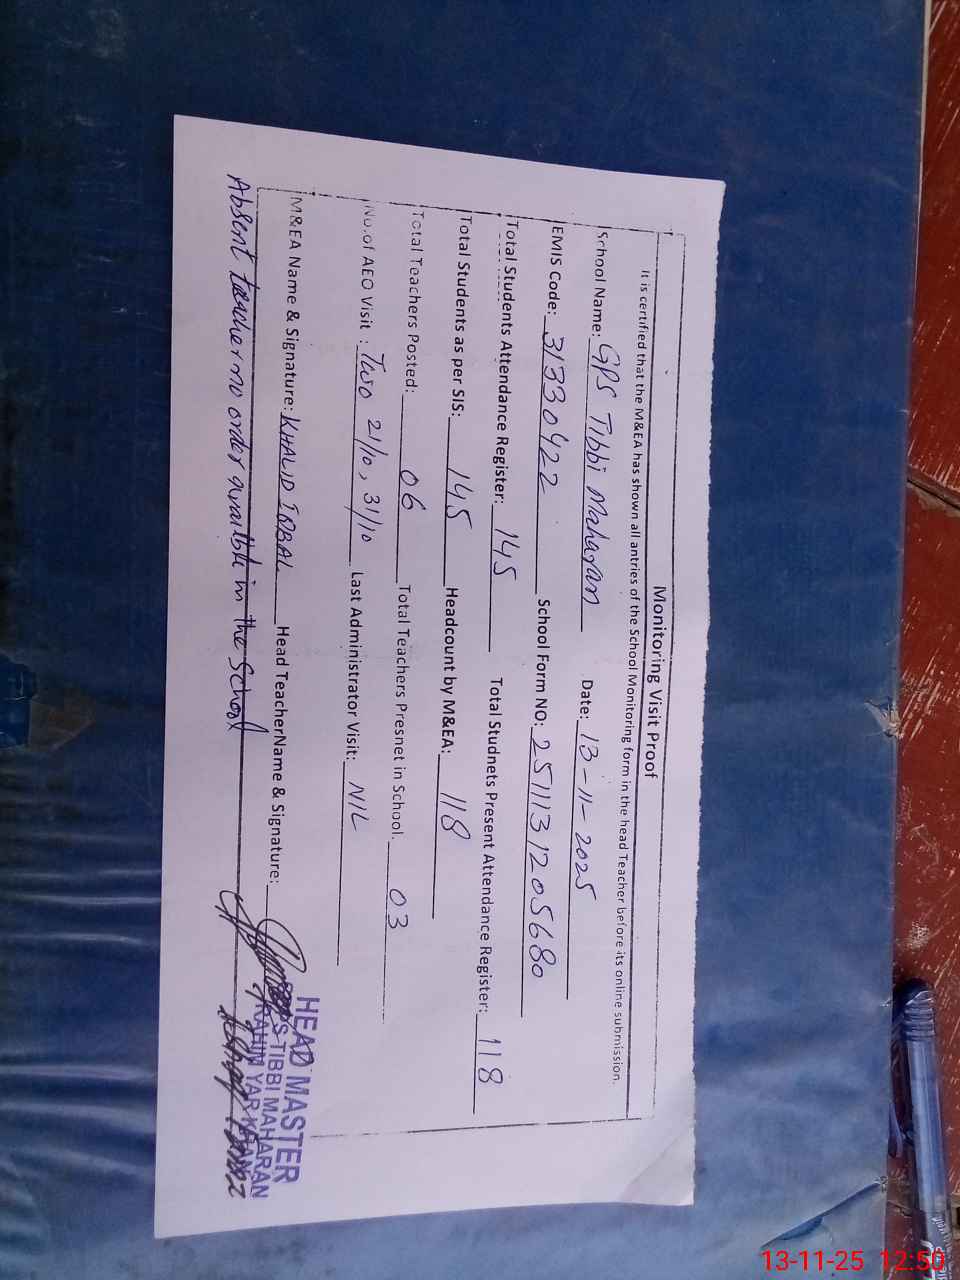 Monitoring Visit Proof
It is certified that the M&EA has shown all antries of the School Monitoring form in the head Teacher before its online submission.
School Name: GPS Tibbi Maharan Date: 13-11-2025
EMIS Code: 31330422 School Form NO: 2511131205680
Total Students Attendance Register: 145 Total Studnets Present Attendance Register: 118
Total Students as per SIS: 145 Headcount by M&EA: 118
Total Teachers Posted: 06 Total Teachers Presnet in School. 03
No.of AEO Visit : Two 21/10, 31/10 Last Administrator Visit: NIL
M&EA Name & Signature: KHALID IQBAL Head TeacherName & Signature:
Absent teacher no order available in the School
HEAD MASTER
TIBBI MAHARAN
RAHIM YAR KHAN
13-11-25 12:50